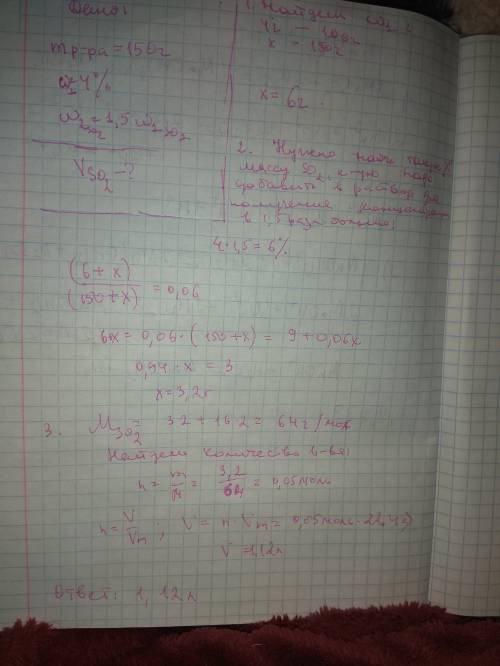 Дано:
m р-ра = 150г
ω₁ = 4%
ω₂ SO₂ = 1,5 ω₁ SO₂
V SO₂ - ?
1. Найдем ω₁
4г — 100г
x — 150г
x = 6г.
2. Нужно найти
массу SO₂, к-рую надо
добавить в раствор для
получения концентрации
в 1,5 раза больше
4·1,5 = 6%
(6+x)
(150+x) = 0,06
6+x = 0,06·(150+x) = 9+0,06x
0,94·x = 3
x = 3,2г
3. M SO₂ = 32+16·2 = 64г/моль
Найдем количество в-ва:
n = m/M = 3,2/64 = 0,05моль
n = V/Vm; V = n·Vm = 0,05моль·22,4
V = 1,12л
Ответ: 1,12л